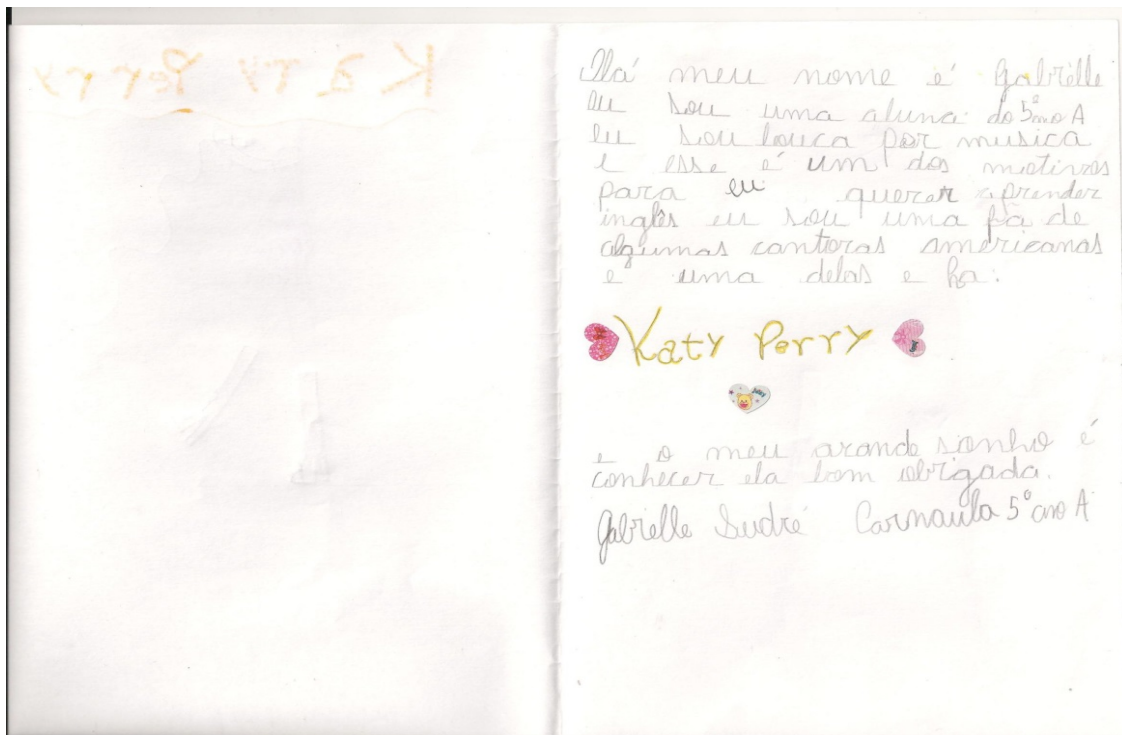 Katy Perry
Olá meu nome é Gabrielle
eu sou uma aluna do 5º ano A
eu sou louca por musica
e esse é um dos motivos
para eu querer aprender
inglês eu sou uma fã de
algumas cantoras americanas
e uma delas e ha:
Katy Perry
e o meu grande sonho é
conhecer ela bom obrigada.
Gabrielle Sudré Carnaula 5º ano A